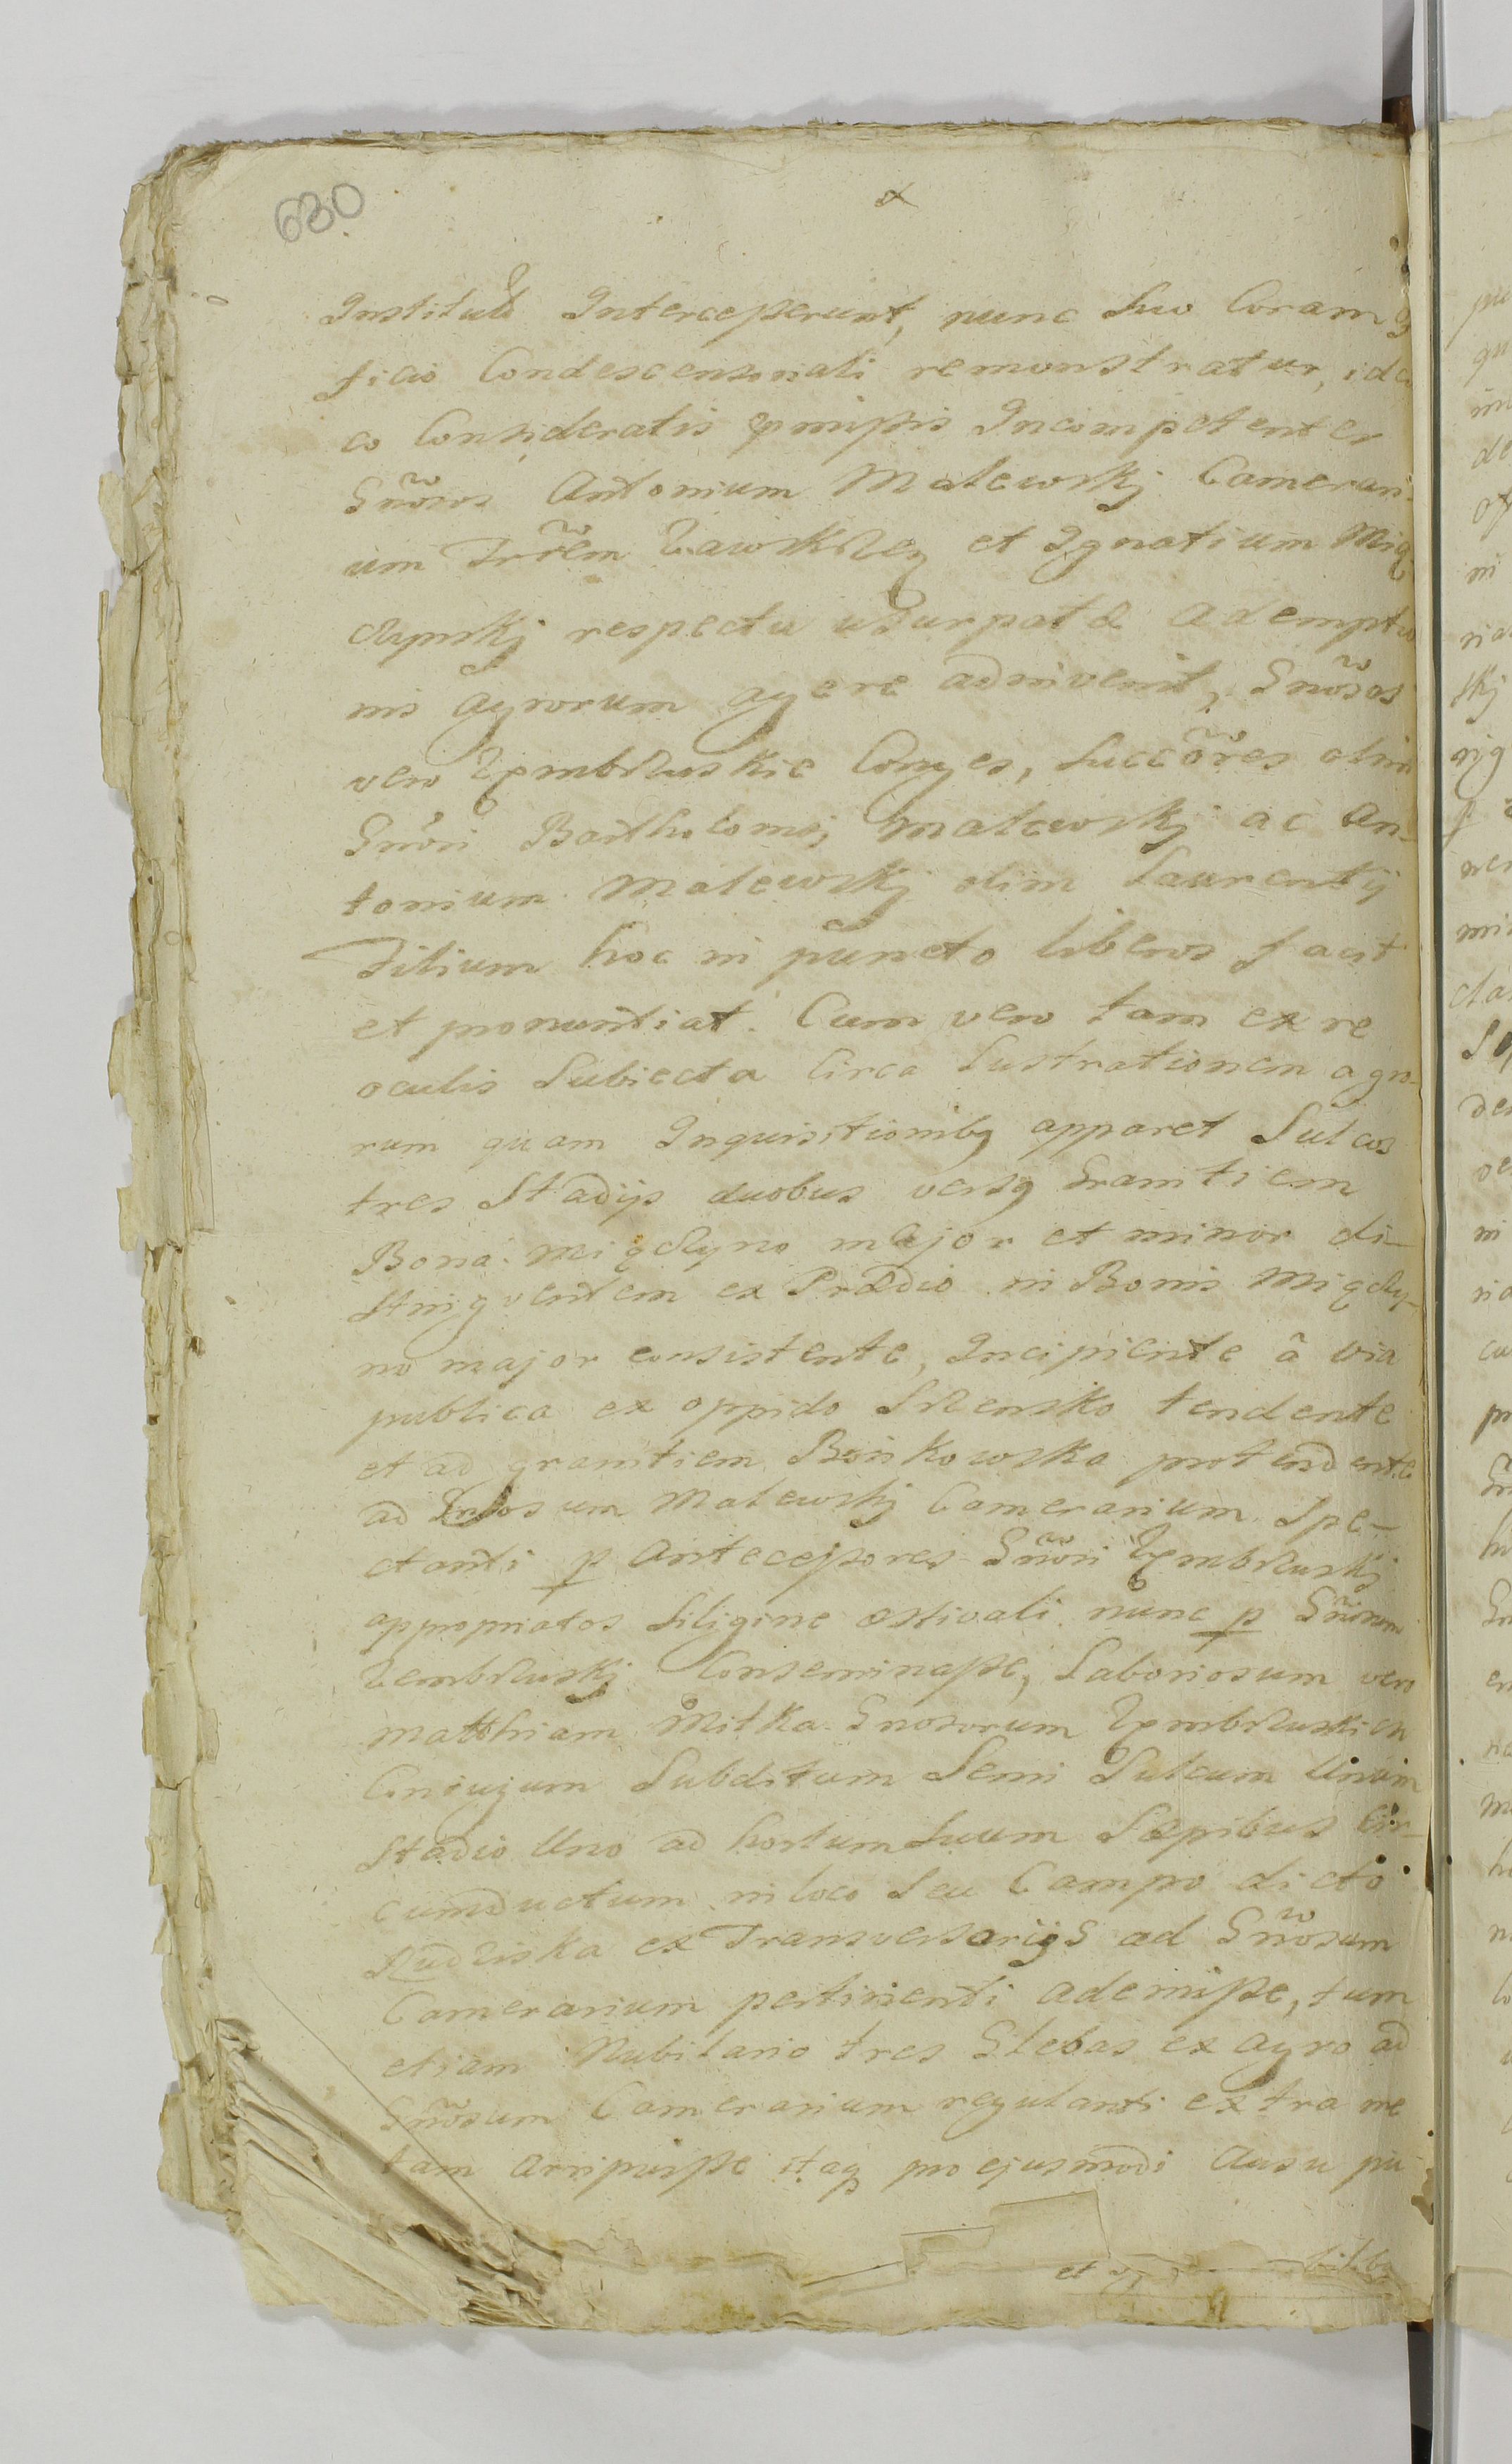 630
Institut Intercesserunt, nunc Suo Coram
ficio Condescensoriali remonstratur, ide
co Consideratis pmissis Incompetenter
Gnõsos Antonium Malewskj Camerari-
um Trrẽm Zawskrzeg et Ignatium Mią
dzynskj respectu usurpatæ ademptio
nis agrorum agere adinvenit, Gnõsos
vero Zembrzuskie Conjges, Succõres olim
Gnõsi Bartholomej Malewskj ac An-
tonium Malewskj olim Laurentij
Filium hoc in puncto liberos facit
et pronuntiat. Cum vero tam ex re
oculis Subiecta Circa Lustrationem agro-
rum quam Inquisitionibq apparet Sulcos
tres Stadijs duobus versq Granitiem
Bona Migdzyno major et minor di-
stingventem ex Prædio in Bonis Migdzy-
no major consistente, Incipiente â via
publica ex oppido Szrensko tendente
et ad granitiem Bońkowska protendente
ad Gnõsum Malewskj Camerarium Spe-
ctanti p Antecessores Gnõsi Zembrzuskj
appropriatos Siligine æstivali nunc p Gnõsum
Zembrzuskj Conseminasse, Laboriosum vero
Matthiam Mitka Gnosorum Zembrzuskich
Coniugum Subditum Semi Sulcum Unum
Stadio Uno ad hortum Suum Sæpibus Cir-
cumductum in loco Seu Campo dicto
Rudziska ex Transversarijs ad Gnõsum
Camerarium pertinenti ademisse, tum
etiam Nubilario tres Glebas ex agro ad
Gnõsum Camerarium regulanti extra me
tam arripuisse itaq pro ejusmodi Ausu pu
et